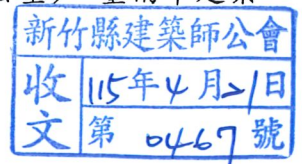 新竹縣建築師公會
收文
115年4月21日
第 0467 號